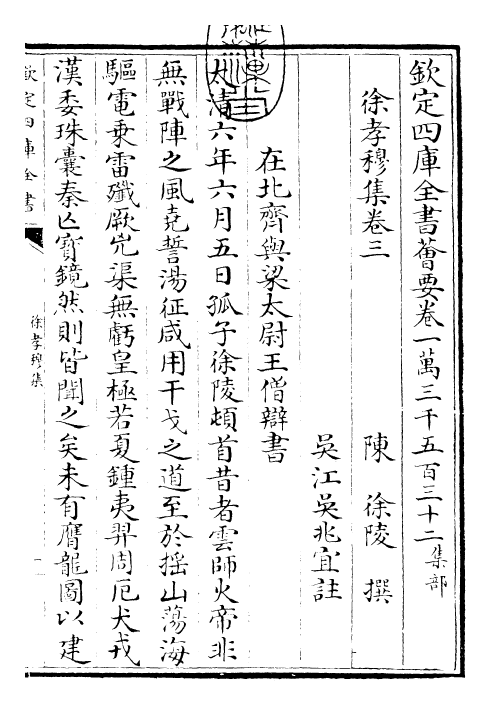 欽定四庫全書薈要卷一萬三千五百三十二集部
徐孝穆集卷三
陳 徐陵 撰
吳江吳兆宜註
在北齊與梁太尉王僧辯書
太清六年六月五日孤子徐陵頓首昔者雲師火帝非
無戰陣之風堯誓湯征咸用干戈之道至於搖山蕩海
驅電乗雷殲厥兇渠無虧皇極若夏鍾夷羿周厄犬戎
漢委珠囊秦亾寳鏡然則皆聞之矣未有膺龍圖以建
欽定四庫全書
徐孝穆集
一